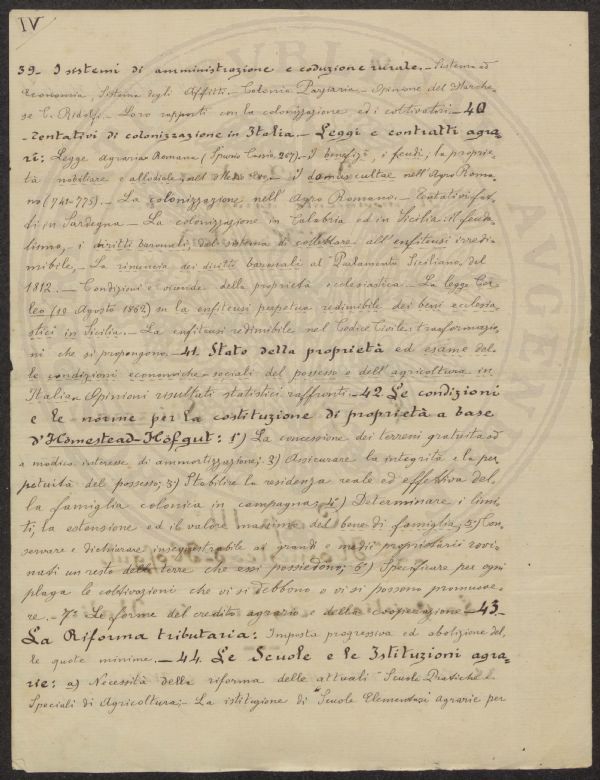 IV
39- I sistemi di amministrazione e coduzione rurale.- Sistema ad
economia, Sistema degli Affitti.- Colonia Parziaria.- Opinione del Marche-
se C. Ridolfi.- Loro rapporti con la colonizzazione ed i coltivatori.- 40
- Tentativi di colonizzazione in Italia.- Leggi e contratti agra-
ri: Legge Agraria Romana (Spurio Cassio 267).- I benefizi, i feudi, la proprie-
tà nobiliare e allodiale nel Medio Evo.- I domuscultae nell'Agro Roma-
no (741-775).- La colonizzazione nell'Agro Romano.- Tentativi fat-
ti in Sardegna - La colonizzazione in Calabria ed in Sicilia: il feuda-
lismo,- i diritti baronali, dal sistema di all'enfiteusi irredi-
mibile,- La rinuncia dei diritti baronali al Parlamento Siciliano del
1812.- Condizioni e vicende della proprietà ecclesiastica.- La legge Cor-
leo (10 Agosto 1862) su la enfiteusi perpetua redimibile dei beni ecclesia-
stici in Sicilia.- La enfiteusi redimibile nel Codice Civile: trasformazio-
ni che si propongono.- 41. Stato della proprietà ed esame del-
le condizioni economiche-sociali del possesso e dell'agricoltura in
Italia. Opinioni risultati statistici raffronti.- 42. Le condizioni
e le norme per la costituzione di proprietà a base
d'Homestead-Höfgut: 1°) La concessione dei terreni gratuita od
a modico interesse di ammortizzazione; 2) Assicurare la integrità e la per-
petuità del possesso; 3) Stabilire la residenza reale ed effettiva del-
la famiglia colonica in campagna; 4°) Determinare i limi-
ti, la estensione ed il valore massimo del bene di famiglia; 5) Con-
servare e dichiarare insequestrabile ai grandi e medii proprietarii rovi-
nati un resto delle terre che essi possiedono; 6°) Specificare per ogni
plaga le coltivazioni che vi si debbono o vi si possono promuove-
re.- 7° Le forme del credito agrario e della cooperazione - 43-
La Riforma tributaria: Imposta progressiva ed abolizione del-
le quote minime.- 44. Le Scuole e le Istituzioni agra-
rie: a) Necessità della riforma delle attuali Scuole Pratiche e
Speciali di Agricoltura;- La istituzione di "Scuole Elementari agrarie per